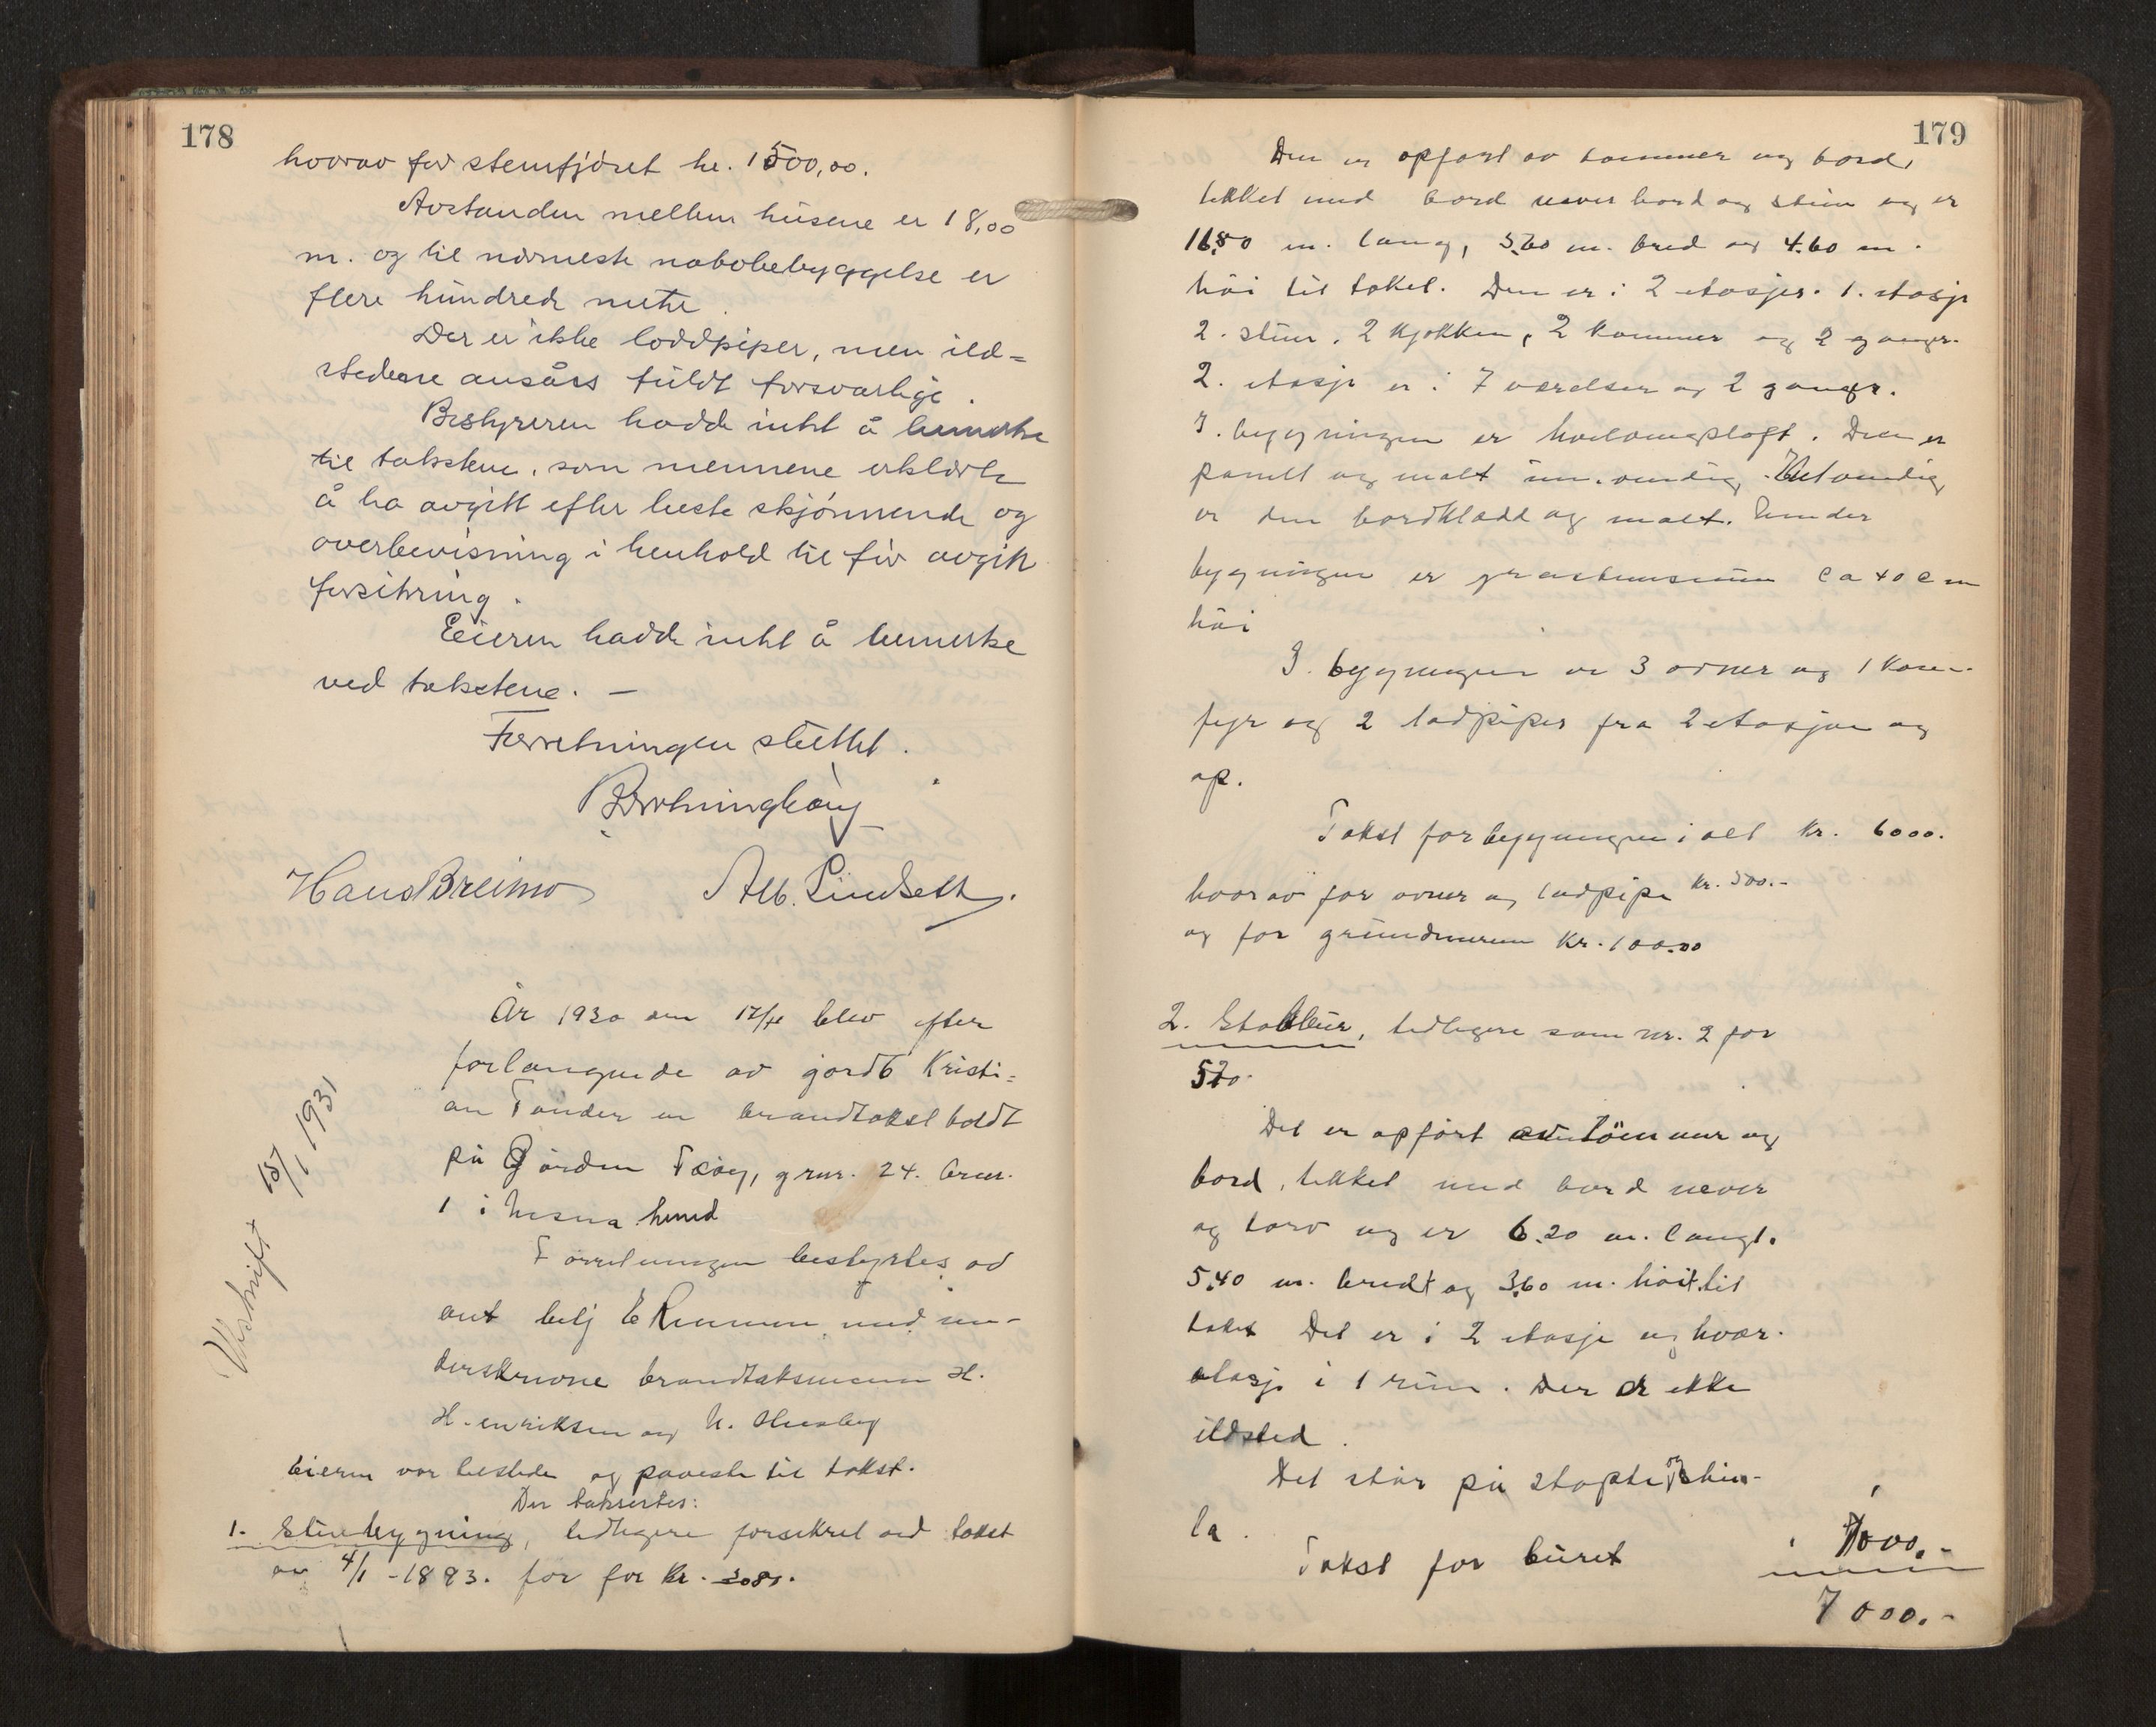 178
hvorav for stenfjöset kr. 1500,00.
Avstanden mellem husene er 18,00
m. og til nærmeste nabobebyggelse er
flere hundrede metr.
Der er ikke loddpiper, men ild=
stedene ansåes fuldt forsvarlige.
Bestyreren hadde intet å bemerke
til takstene, som mennene erklærte
å ha avgitt efter beste skjönnende og
overbevisning i henhold til för avgitt
forsikring.
Eieren hadde intet å bemerke
ved takstene. —
Forretningen sluttet.
Hans Breimo Alb. Lindseth.
År 1930 den 17/ blev efter
forlangende av gårdb Kristi=
an Tønder en brandtakst holdt
på Gården gnr. 24. brnr.
1 i Nesna herred
Forretningen bestyrtes av
ant med un-
derskrevne brandtaksmenn H.
Henriksen og N. Husby
Eieren var tilstede og påviste til takst.
Der taksertes:
1. Stuebygning, tidligere forsikret ved takst
av 4/1 - 1893. for for Kr. 3080.
15/1 1931
179
Den er opført av tømmer og bord,
tekket med bord never bord og stein og er
16.80 m. lang, 5.60 m. bred og 4.60 m.
höi til taket. Den er i 2 etasjer. 1. etasje
2. stuer, 2 kjøkken, 2 kammer og 2 ganger.
2. etasje er i 7 værelser og 2 ganger.
I. bygningen er hvelvingsloft. Den er
panelt og malt innvendig. Utvendig
er den bordkledd og malt. Under
bygningen er gråstensmur ca 40 cm
höi
I. bygningen er 3 ovner og 1 kom-
fyr og 2 lodpiper fra 2 etasjen og
op.
Takst for bygningen i alt Kr. 6000.
hvorav for ovner og lodpipe Kr. 500.-
og for grundmuren Kr. 100.00
2. Stabbur, tidligere som nr. 2 for
520.
Det er opført av tömmer og
bord, tekket med bord never
og torv og er 6.20 m. langt.
5.40 m. bredt og 3.60 m. höit til
taket Det er i 2 etasje og hver.
etasje i 1 rum. Der er ikke
ildsted.
Det står på stapler
Takst for buret 1000.-
7000.-